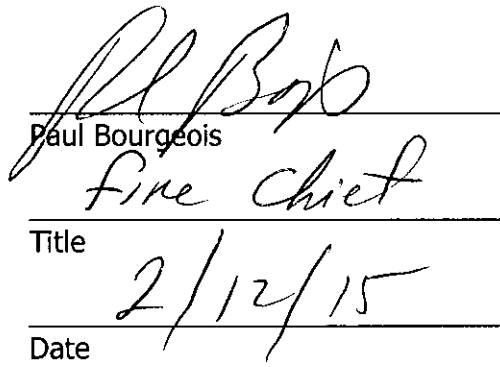 Paul Bourgeois
Fire Chief
Title
2/12/15
Date